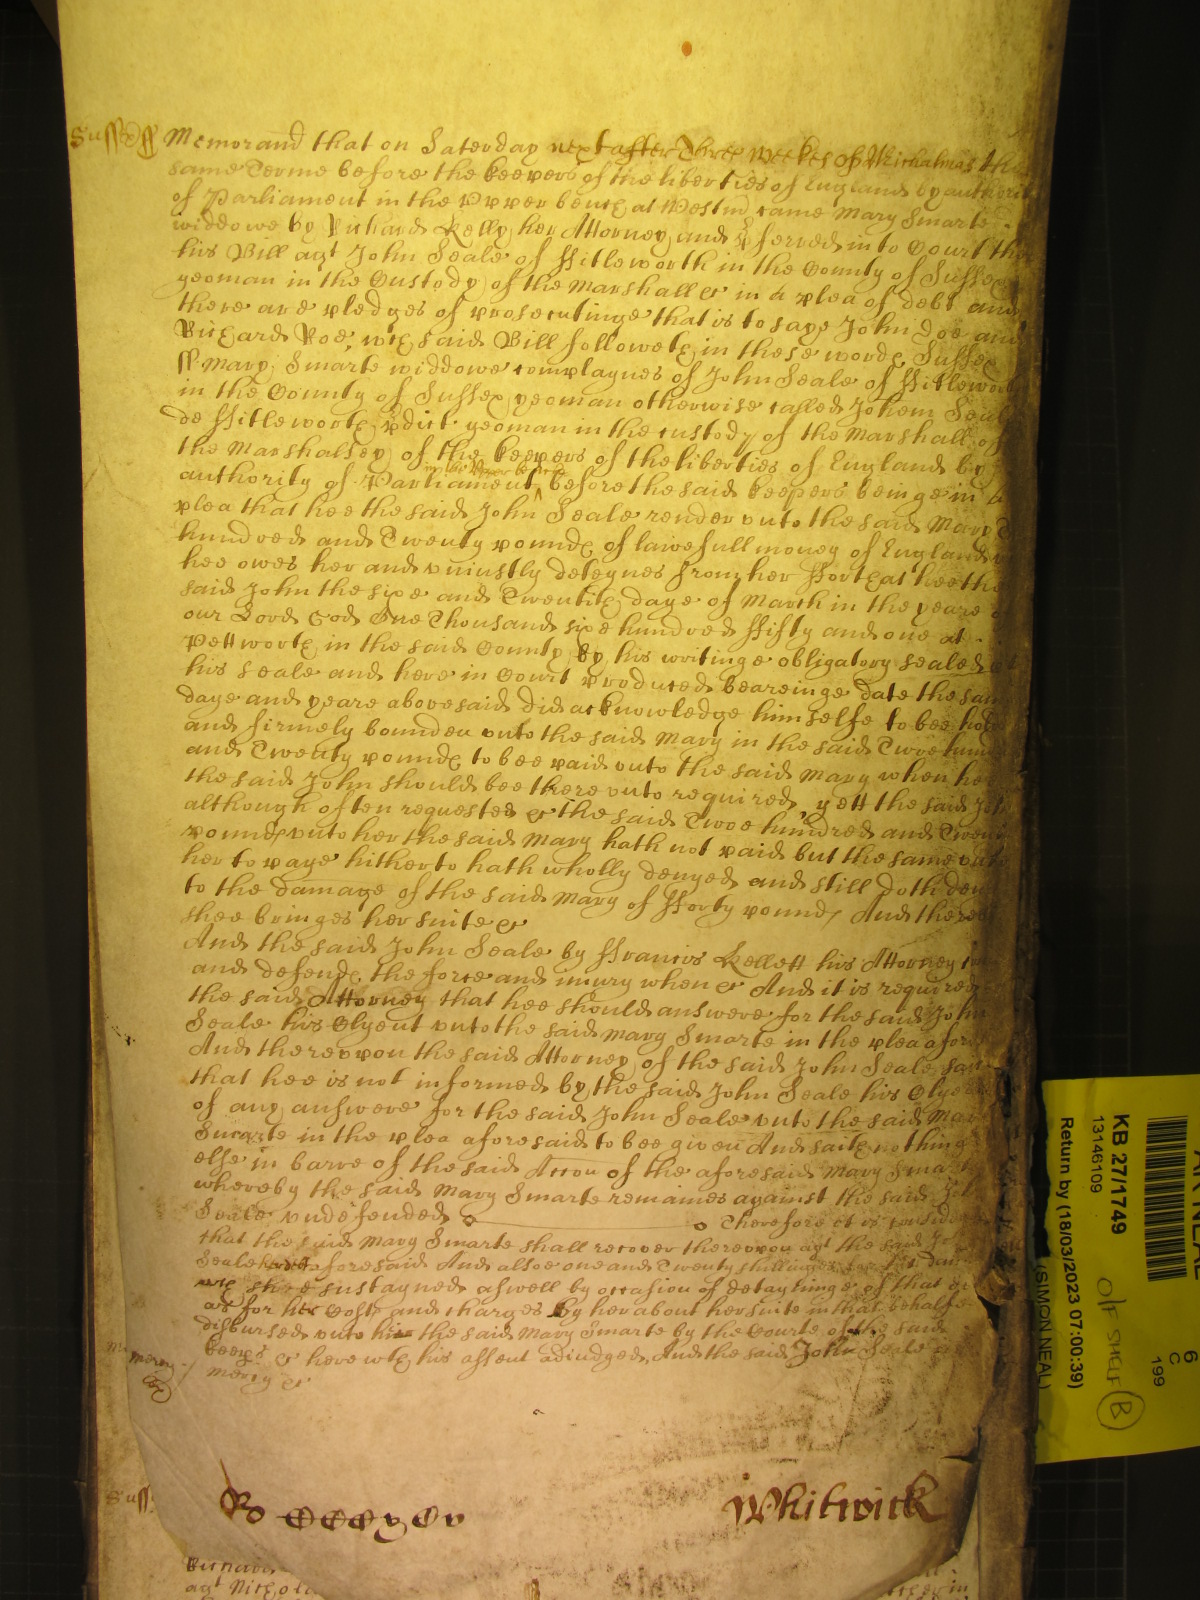 Suss ss Memorand that on Saterday next after Three weekes of Michalmas this
same Terme before the keepers of the liberties of England by authority
of Parliament in the Upper bench at Westm came Mary Smarte
widdowe by Richard Kelly her Attorney and pferred into Court then
his Bill agt John Seale of ffitleworth in the County of Sussex
yeoman in the Custody of the Marshall &c in a plea of debt and
there are pledges of prosecutinge that is to saye John Doe and
Richard Roe, wch said Bill followeth in these words Sussex
ss Mary Smarte widdowe complaynes of John Seale of ffitleworth
in the County of Sussex yeoman otherwise called Johem Seale
de ffitleworth pdict yeoman in the custody of the Marshall of
the Marshalsey of the keepers of the liberties of England by
in the Upper bench
authority of Parliament before the said keepers beinge in a
plea that hee the said John Seale render unto the said Mary
hundred and Twenty pounds of lawefull money of England
hee owes her and uniustly deteynes from her ffor that hee the
said John the sixe and Twentith daye of March in the yeare
our Lord God One Thousand sixe hundred ffifty and one at
Pettworth in the said County by his writinge obligatory sealed
his seale and here in Court produced beareinge date the same
daye and yeare abovesaid did acknowledge himselfe to bee
and firmely bounden unto the said Mary in the said Twoe
and Twenty pounds to bee paid unto the said Mary when hee
the said John should bee there unto required, yett the said John
although often requested &c the said Twoe hundred and Twenty
pounds unto her the said Mary hath not paid but the same unto
her to paye hitherto hath wholly denyed and still doth deny
to the damage of the said Mary of fforty pounds And there
shee bringes her suite &c
And the said John Seale by ffrancis Kellett his Attorney
and defends the force and iniury when &c And it is required
the said Attorney that hee should answere for the said John
Seale his Clyent unto the said Mary Smarte in the plea afores
And thereupon the said Attorney of the said John Seale saith
that hee is not informed by the said John Seale his Clyent
of any answere for the said John Seale unto the said Mary
Smarte in the plea aforesaid to bee given And saith nothing
else in barre of the said Accon of the aforesaid Mary Smarte
whereby the said Mary Smarte remaines against the said John
Seale undefended Therefore it is considered
that the said Mary Smarte shall recover thereupon agt the said John
Seale aforesaid And alsoe one and Twenty shillinges for
wch shee sustayned aswell by occasion of detayninge of that
as for her Costs and charges by her about her suite in that behalfe
disbursed unto the said Mary Smarte by the Courte of the said
keeps &c here wth his assent adiudged, And the said John Seale in
mercy &c
mercy
Suss
Ro
Whitwick
agt Nichol
KB 27/1749
13146109
Return by (18/03/2023 07:00:39)
(SIMON NEAL)
OFF SHELF B
6
C
199